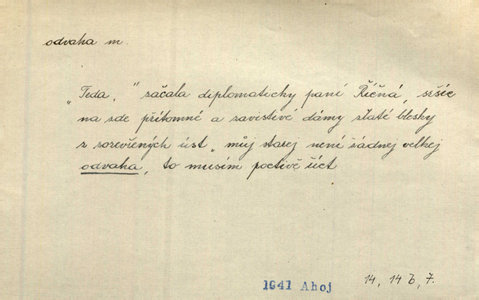 odvaha m.
"Teda," začala diplomaticky paní Říčná, sršíc
na zde přítomné a závistivé dámy zlaté blesky
z rozevřených úst, "můj starej není žádnej velkej
odvaha, to musím poctivě říct
1941 Ahoj 14, 14 b, 7.